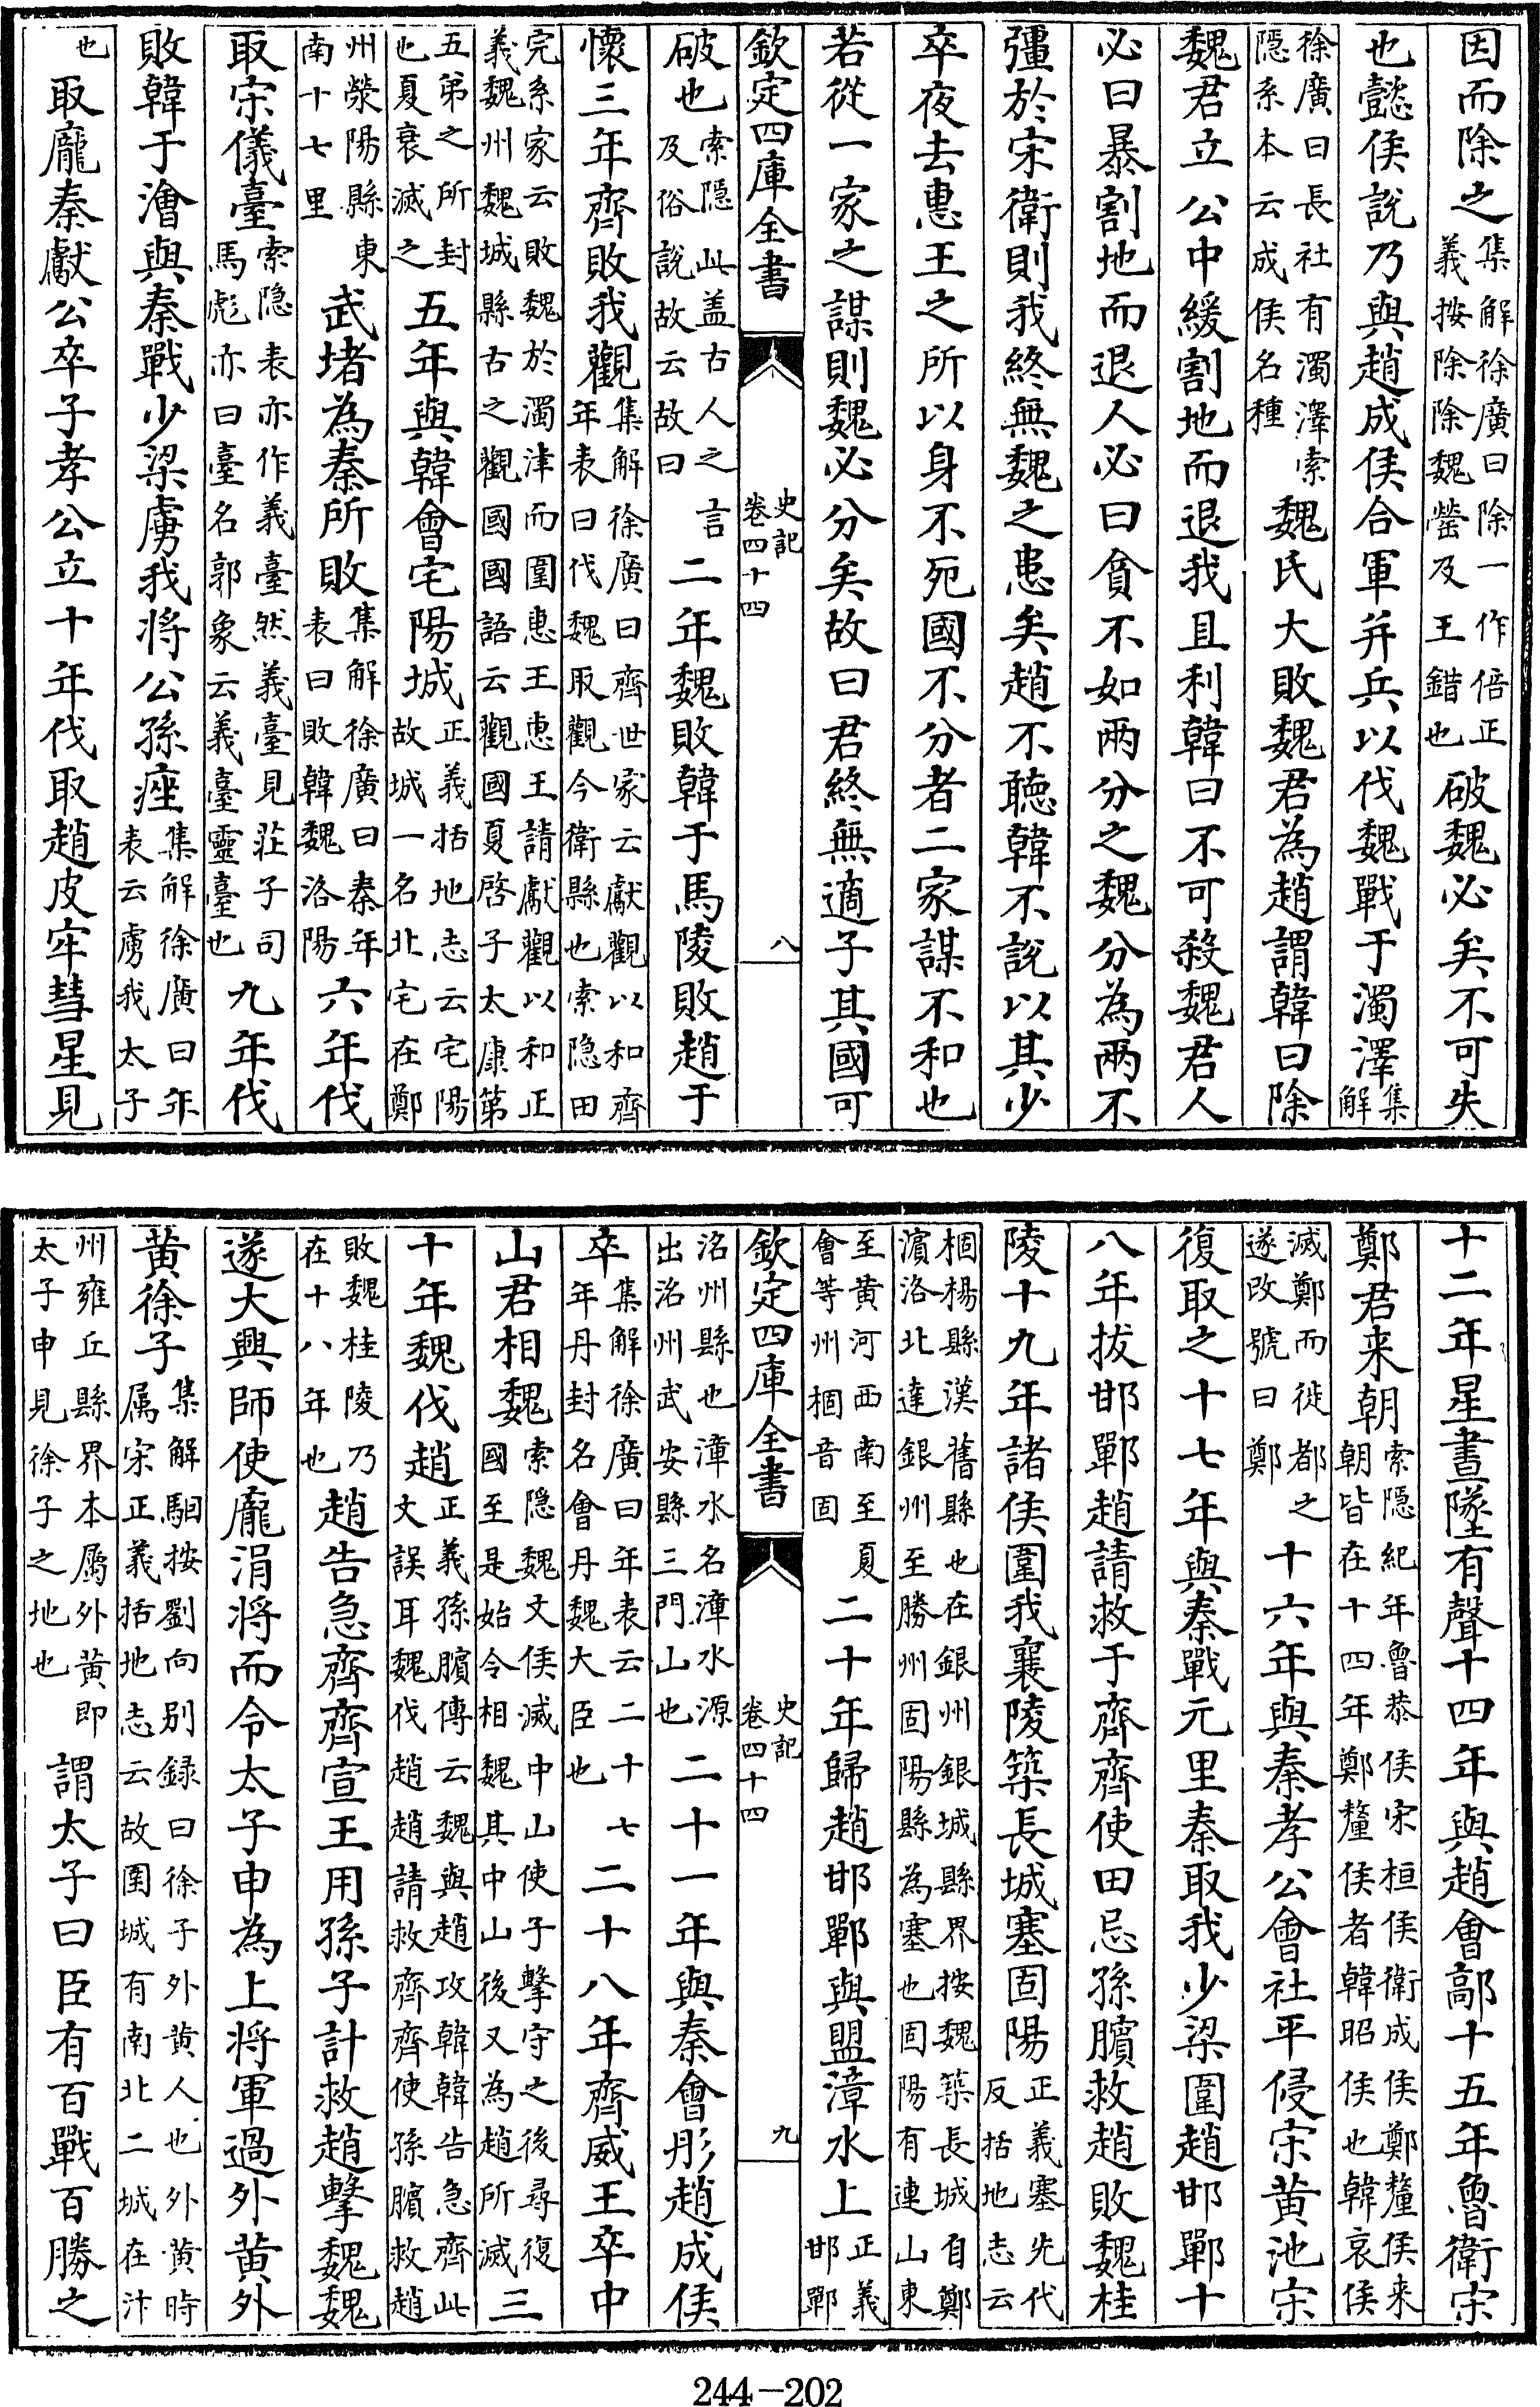 因而除之集解徐廣曰除一作倍正義按除除魏罃及王錯也破魏必矣不可失
也懿侯說乃與趙成侯合軍并兵以伐魏戰于濁澤集解
徐廣曰長社有濁澤索隱系本云成侯名種魏氏大敗魏君為趙謂韓曰除
魏君立公中緩割地而退我且利韓曰不可殺魏君人
必曰暴割地而退人必曰貪不如兩分之魏分為兩不
彊於宋衛則我終無魏之患矣趙不聽韓不說以其少
卒夜去惠王之所以身不死國不分者二家謀不和也
若從一家之謀則魏必分矣故曰君終無適子其國可
欽定四庫全書 史記卷四十四 八
破也索隱此盖古人之言及俗說故云故曰二年魏敗韓于馬陵敗趙于
懷三年齊敗我觀集解徐廣曰齊世家云獻觀以和齊年表曰伐魏取觀今衛縣也索隱田
完系家云敗魏於濁津而圍惠王惠王請獻觀以和正義魏州魏城縣古之觀國國語云觀國夏啓子太康第
五弟之所封也夏衰滅之五年與韓會宅陽城正義括地志云宅陽故城一名北宅在鄭
州滎陽縣東南十七里武堵為秦所敗集解徐廣曰秦年表曰敗韓魏洛陽六年伐
取宋儀臺索隱表亦作義臺然義臺見莊子司馬彪亦曰臺名郭象云義臺靈臺也九年伐
敗韓于澮與秦戰少梁虜我將公孫痤集解徐廣曰年表云虜我太子
也取龐秦獻公卒子孝公立十年伐取趙皮牢彗星見
十二年星晝墜有聲十四年與趙會鄗十五年魯衛宋
鄭君来朝索隱紀年魯恭侯宋桓侯衛成侯鄭釐侯来朝皆在十四年鄭釐侯者韓昭侯也韓哀侯
滅鄭而徙都之遂改號曰鄭十六年與秦孝公會社平侵宋黄池宋
復取之十七年與秦戰元里秦取我少梁圍趙邯鄲十
八年拔邯鄲趙請救于齊齊使田忌孫臏救趙敗魏桂
陵十九年諸侯圍我襄陵築長城塞固陽正義塞先代反括地志云
棝楊縣漢舊縣也在銀州銀城縣界按魏築長城自鄭濱洛北達銀州至勝州固陽縣為塞也固陽有連山東
至黄河西南至夏會等州棝音固二十年歸趙邯鄲與盟漳水上正義邯鄲
欽定四庫全書 史記卷四十四 九
洺州縣也漳水名漳水源出洺州武安縣三門山也二十一年與秦會彤趙成侯
卒集解徐廣曰年表云二十七年丹封名會丹魏大臣也二十八年齊威王卒中
山君相魏索隱魏文侯滅中山使子擊守之後尋復國至是始令相魏其中山後又為趙所滅三
十年魏伐趙正義孫臏傳云魏與趙攻韓韓告急齊此文誤耳魏伐趙趙請救齊齊使孫臏救趙
敗魏桂陵乃在十八年也趙告急齊齊宣王用孫子計救趙擊魏魏
遂大興師使龐涓將而令太子申為上將軍過外黄外
黄徐子集解駰按劉向别録曰徐子外黄人也外黄時属宋正義括地志云故圉城有南北二城在汴
州雍丘縣界本屬外黄即太子申見徐子之地也謂太子曰臣有百戰百勝之
244—202